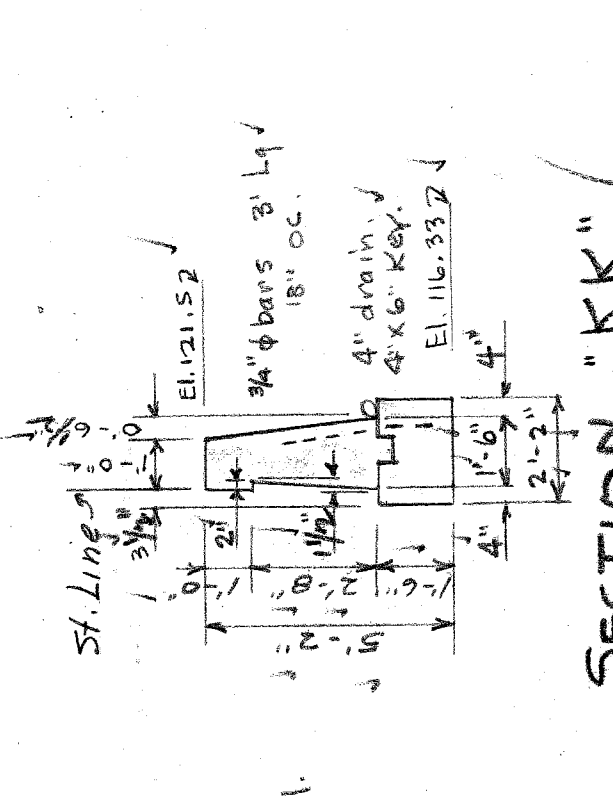 St. Line
3 1/2"
1'-0"
0'-6 1/2"
El. 121.52
3/4" φ bars 3' Lg
18" OC.
4" drain.
4"x6" Key.
El. 116.33
2"
1 1/2"
1'-0"
2'-8"
1'-6"
5'-2"
4"
1'-6"
4"
2'-2"
SECTION "KK"